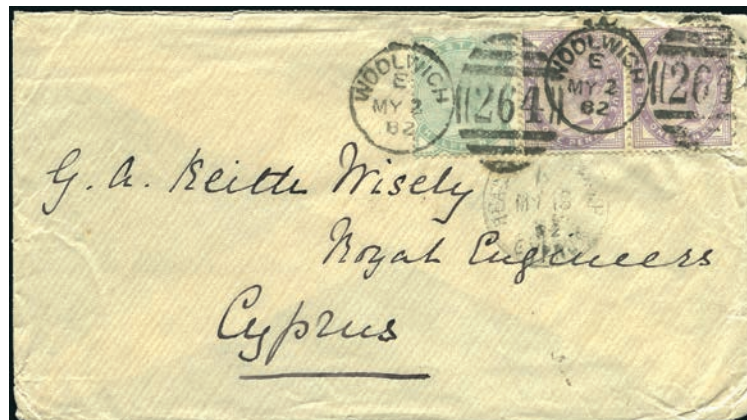 WOOLWICH
E
MY 2
82
264
WOOLWICH
E
MY 2
82
26
G. A. Keith Wisely
Royal Engineers
Cyprus
MY 13
82